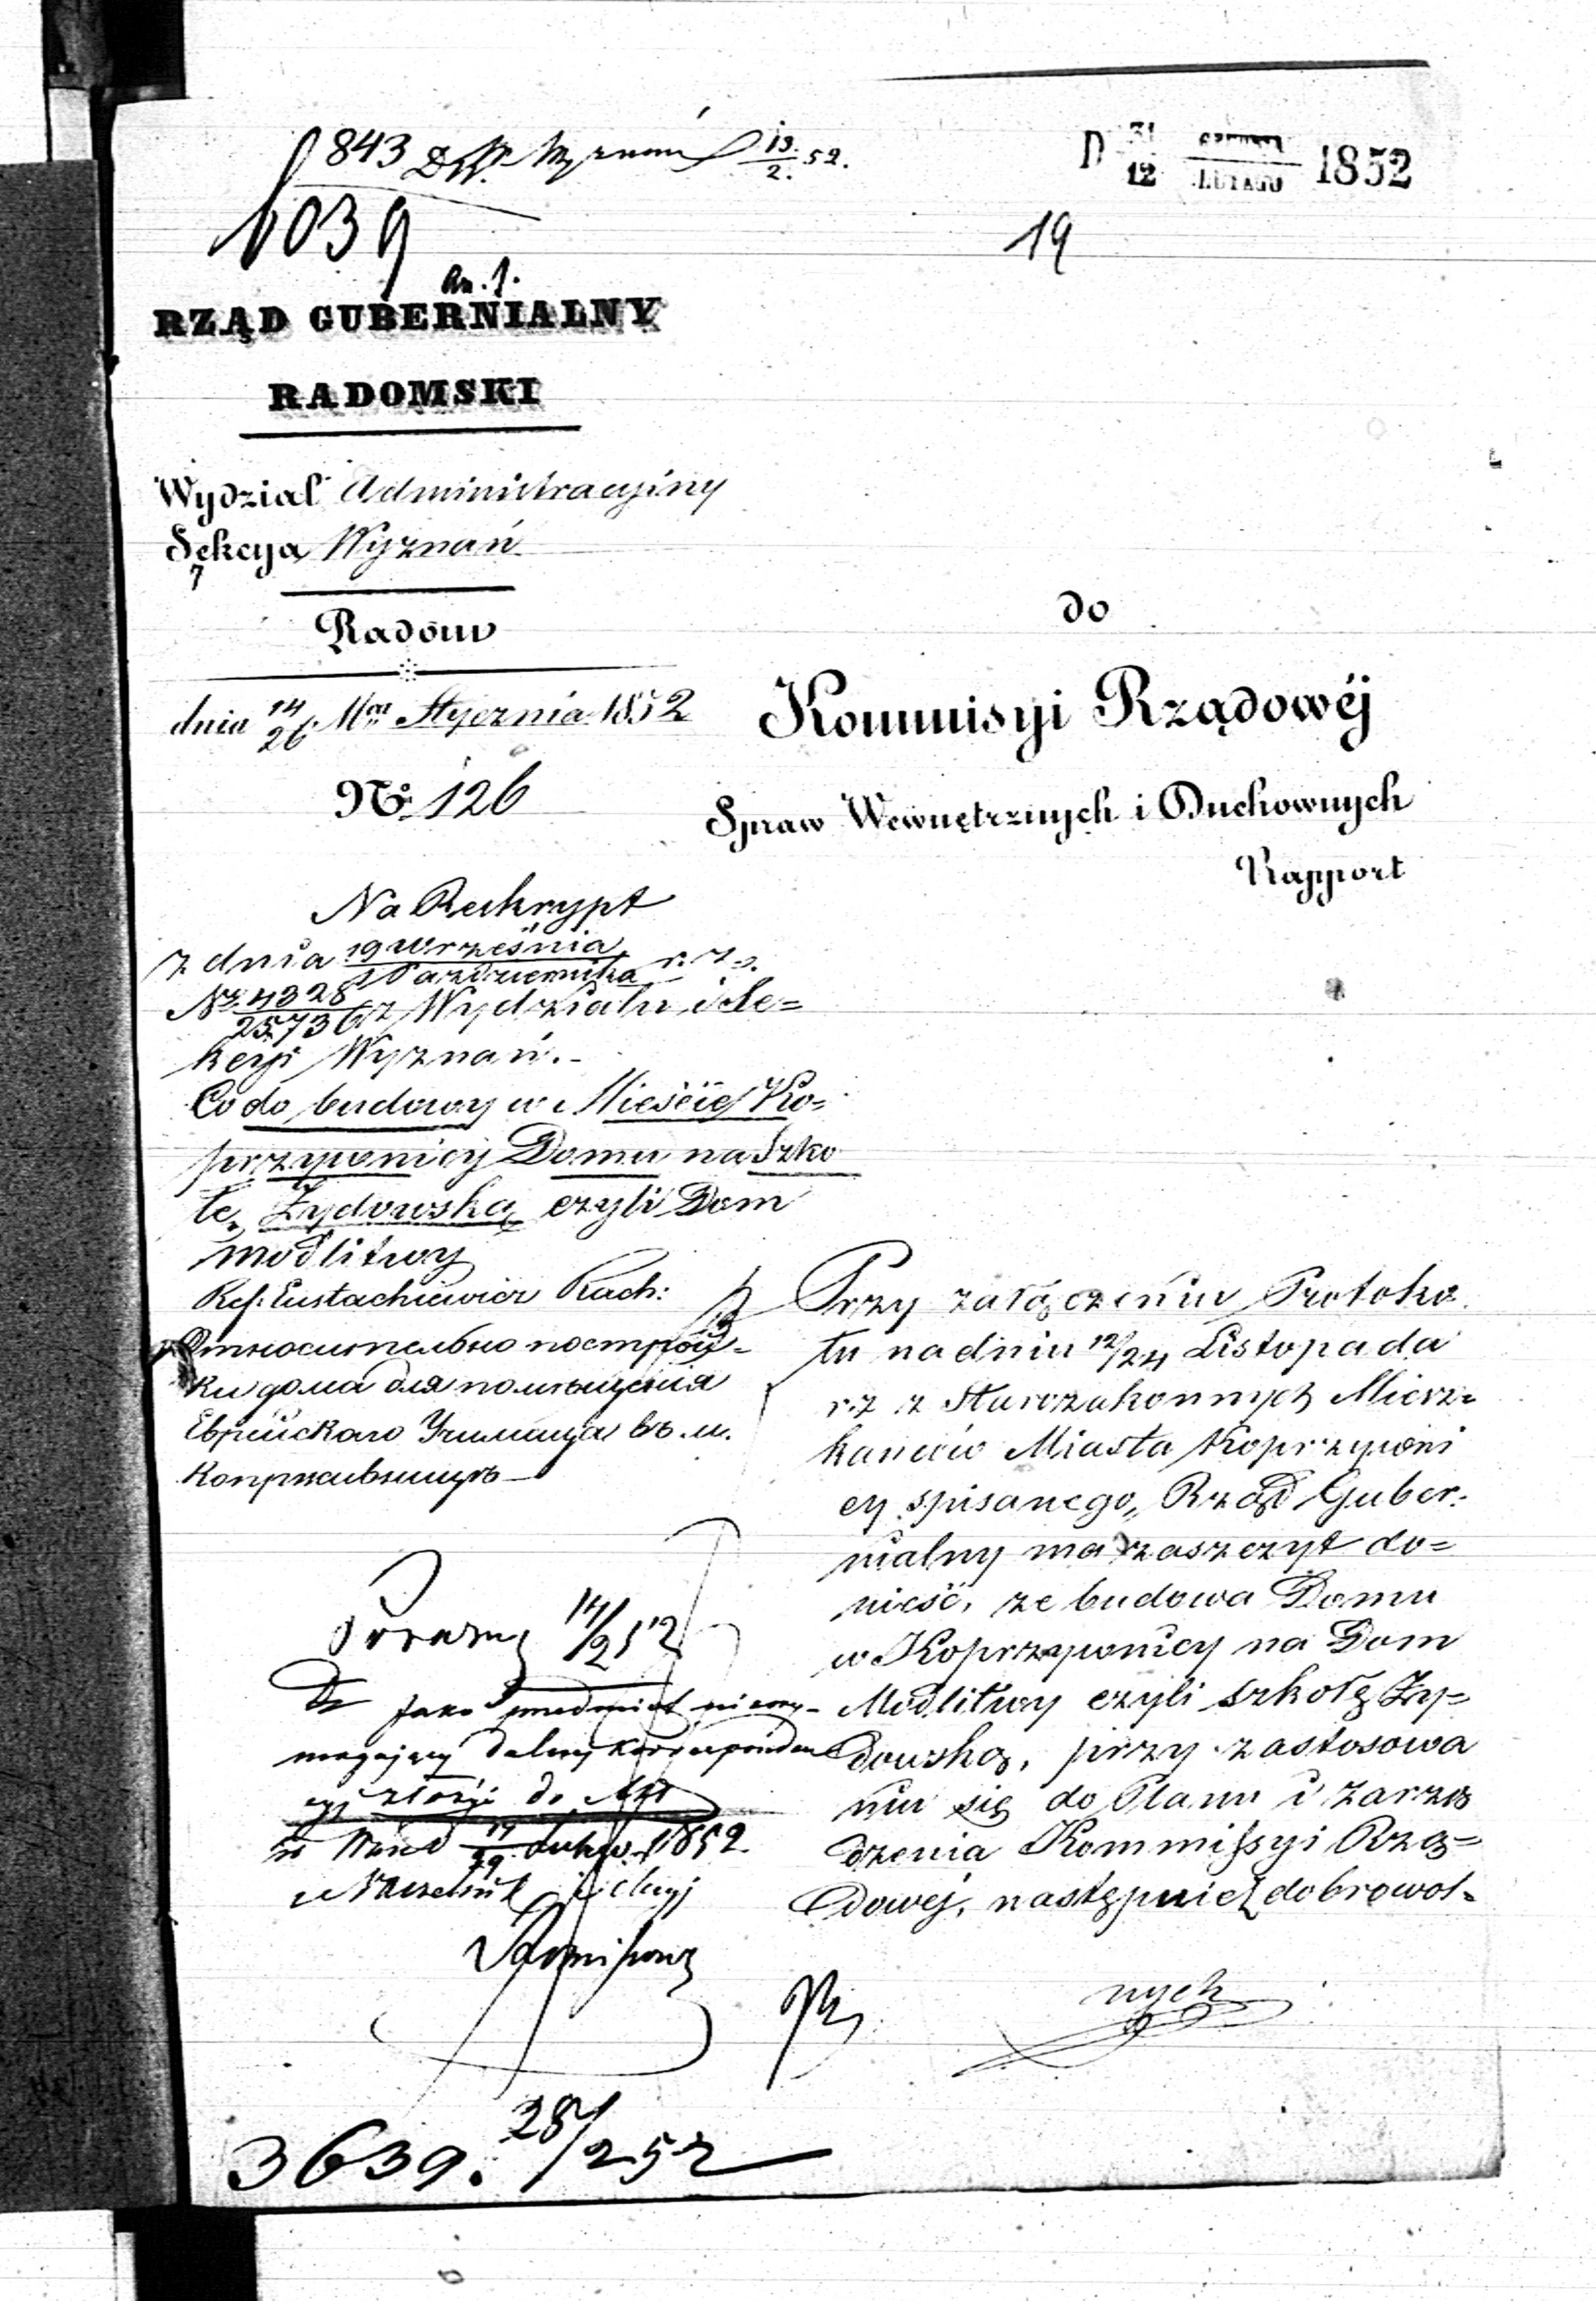 843 D. W. Wyznań 13/2. 52.
D 31/12 STYCZNIA/LUTEGO 1852
1039
19
An. 1.
RZĄD GUBERNIALNY
RADOMSKI
Wydział Administracyjny
Sekcya Wyznań
7
Radom
dnia 14/26 Mca Stycznia 1852
No. 126
do
Kommisyi Rządowéj
Spraw Wewnętrznych i Duchownych
Rapport
Na Reskrypt
z dnia 19 Września/1 Października r. z.
Nr. 4328/25736 z Wydziału i Se=
kcyi Wyznań.-
Co do budowy w Mieście Ko=
przywnicy Domu na Szko
łę Żydowską czyli Dom
modlitwy
Ref: Eustachiewicz Rach:
Относительно построй-
ки дома для помѣщенія
Еврейскаго Училища въ м.
Копрживницѣ
Przy załączeniu Protoko
łu na dniu 12/24 Listopada
r.z z Starozakonnych Miesz=
kańców Miasta Koprzywni
cy spisanego, Rząd Guber-
nialny ma zaszczyt do=
nieść, że budowa Domu
w Koprzywnicy na Dom
Modlitwy czyli szkołę Ży=
dowską, przy zastosowa
niu się do Planu i zarzą
dzenia Kommissyi Rzą=
dowéj, następnie z dobrowol=
nych
14/2 52
Jako przedmiot niewy-
magający dalszej korresponden
cyi złożyć do Akt
14/ Lutego 1852
Naczelnik Sekcyi
3639. 28/2 52